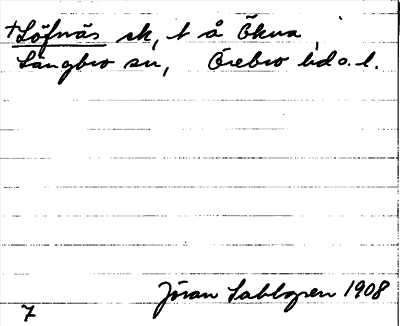 +Löfnäs sk, t å Ökna
Långbro sn, Örebro hd o. l.
Jöran Sahlgren 1908
7